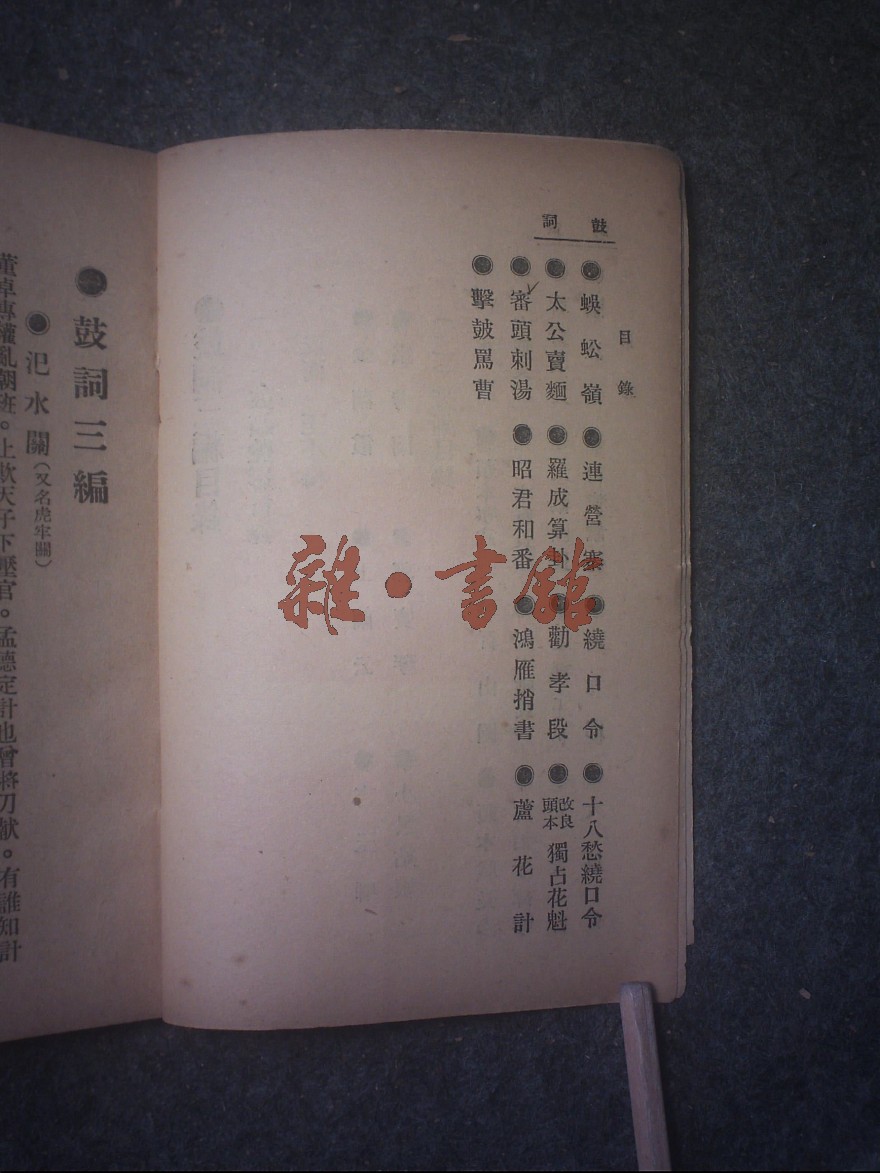 鼓詞
目錄
●蜈蚣嶺 ●連營寨 ●繞口令 ●十八愁繞口令
●太公賣麵 ●羅成算卦 ●勸孝段 ●改良頭本獨占花魁
●審頭刺湯 ●昭君和番 ●鴻雁捎書 ●蘆花計
●擊皷罵曹
●鼓詞三編
●汜水關(又名虎牢關)
董卓專權亂朝班。上欺天子下壓官。孟德定計也曾將刀献。有誰知計
雜·書館